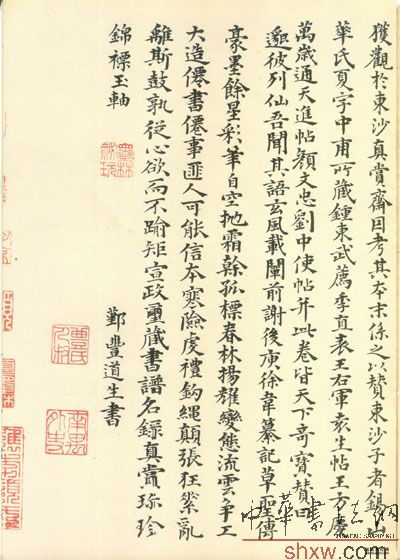 獲觀於東沙真賞齋因考其本末係之以贊東沙子者錫山
華氏夏字中甫所藏鍾東武薦季直表王右軍袁生帖王方慶
萬歲通天進帖顏文忠劉中使帖并此卷皆天下奇寶贊曰
邈彼列仙吾聞其語玄風載闡前謝後庾徐韋纂記草聖傳
豪墨餘星彩筆自空拋霜幹孤標春林揚耀變態流雲爭工
大造僊書僊事匪人可能信本寔險虔禮鈎繩顛張狂素亂
離斯鼓孰從心欲而不踰矩宣政璽藏書譜名錄真賞珎珍
錦褾玉軸
鄞豐道生書
南禺外史
中華書法網
shxw.com